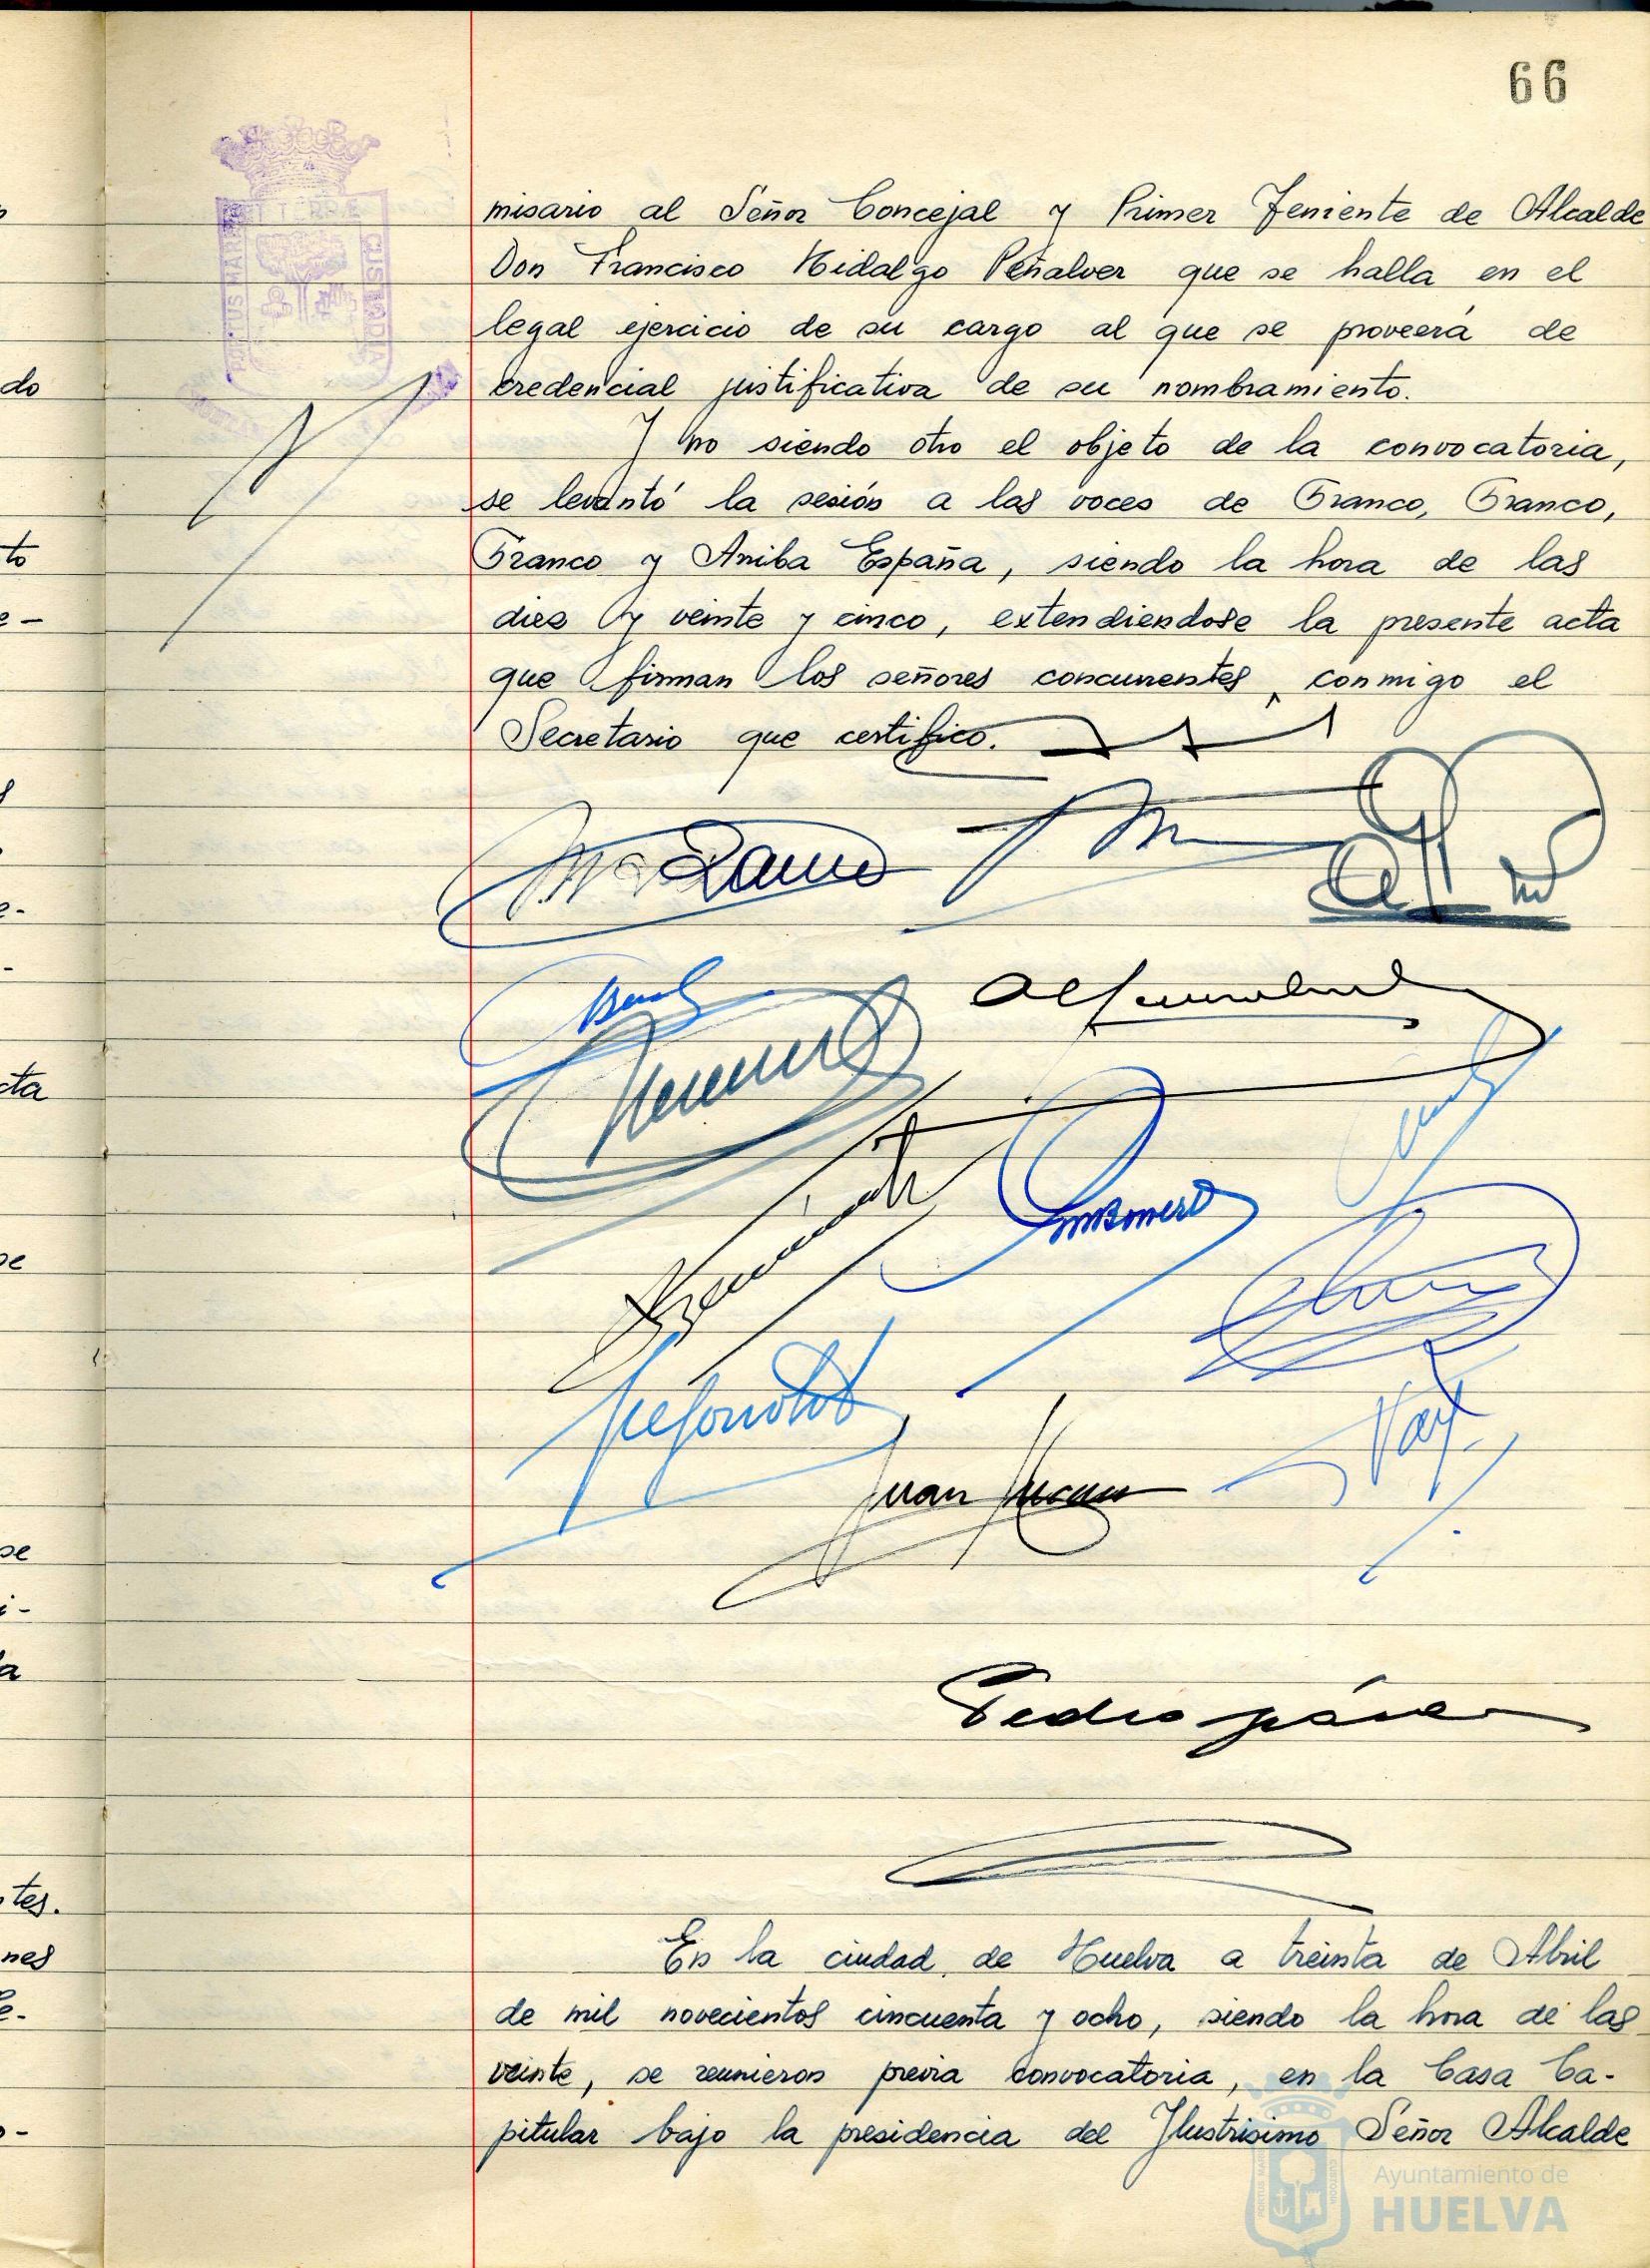 66
misario al Señor Concejal y Primer Teniente de Alcalde
Don Francisco Hidalgo Peñalver que se halla en el
legal ejercicio de su cargo al que se proveerá de
credencial justificativa de su nombramiento.
Y no siendo otro el objeto de la convocatoria,
se levantó la sesión a las voces de Franco, Franco,
Franco y Arriba España, siendo la hora de las
diez y veinte y cinco, extendiendose la presente acta
que firman los señores concurrentes, conmigo el
Secretario que certifico.
Juan
Pedro
En la ciudad de Huelva a treinta de Abril
de mil novecientos cincuenta y ocho, siendo la hora de las
veinte, se reunieron previa convocatoria, en la Casa Ca-
pitular bajo la presidencia del Ilustrisimo Señor Alcalde
Ayuntamiento de
HUELVA
do
to
cta
se
se
tes.
nes